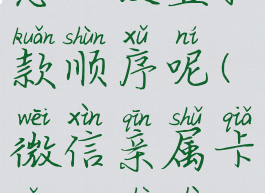 kuǎn shùn xǔ ní
款顺序呢(
wēi xìn qīn shǔ qiǎ
微信亲属卡